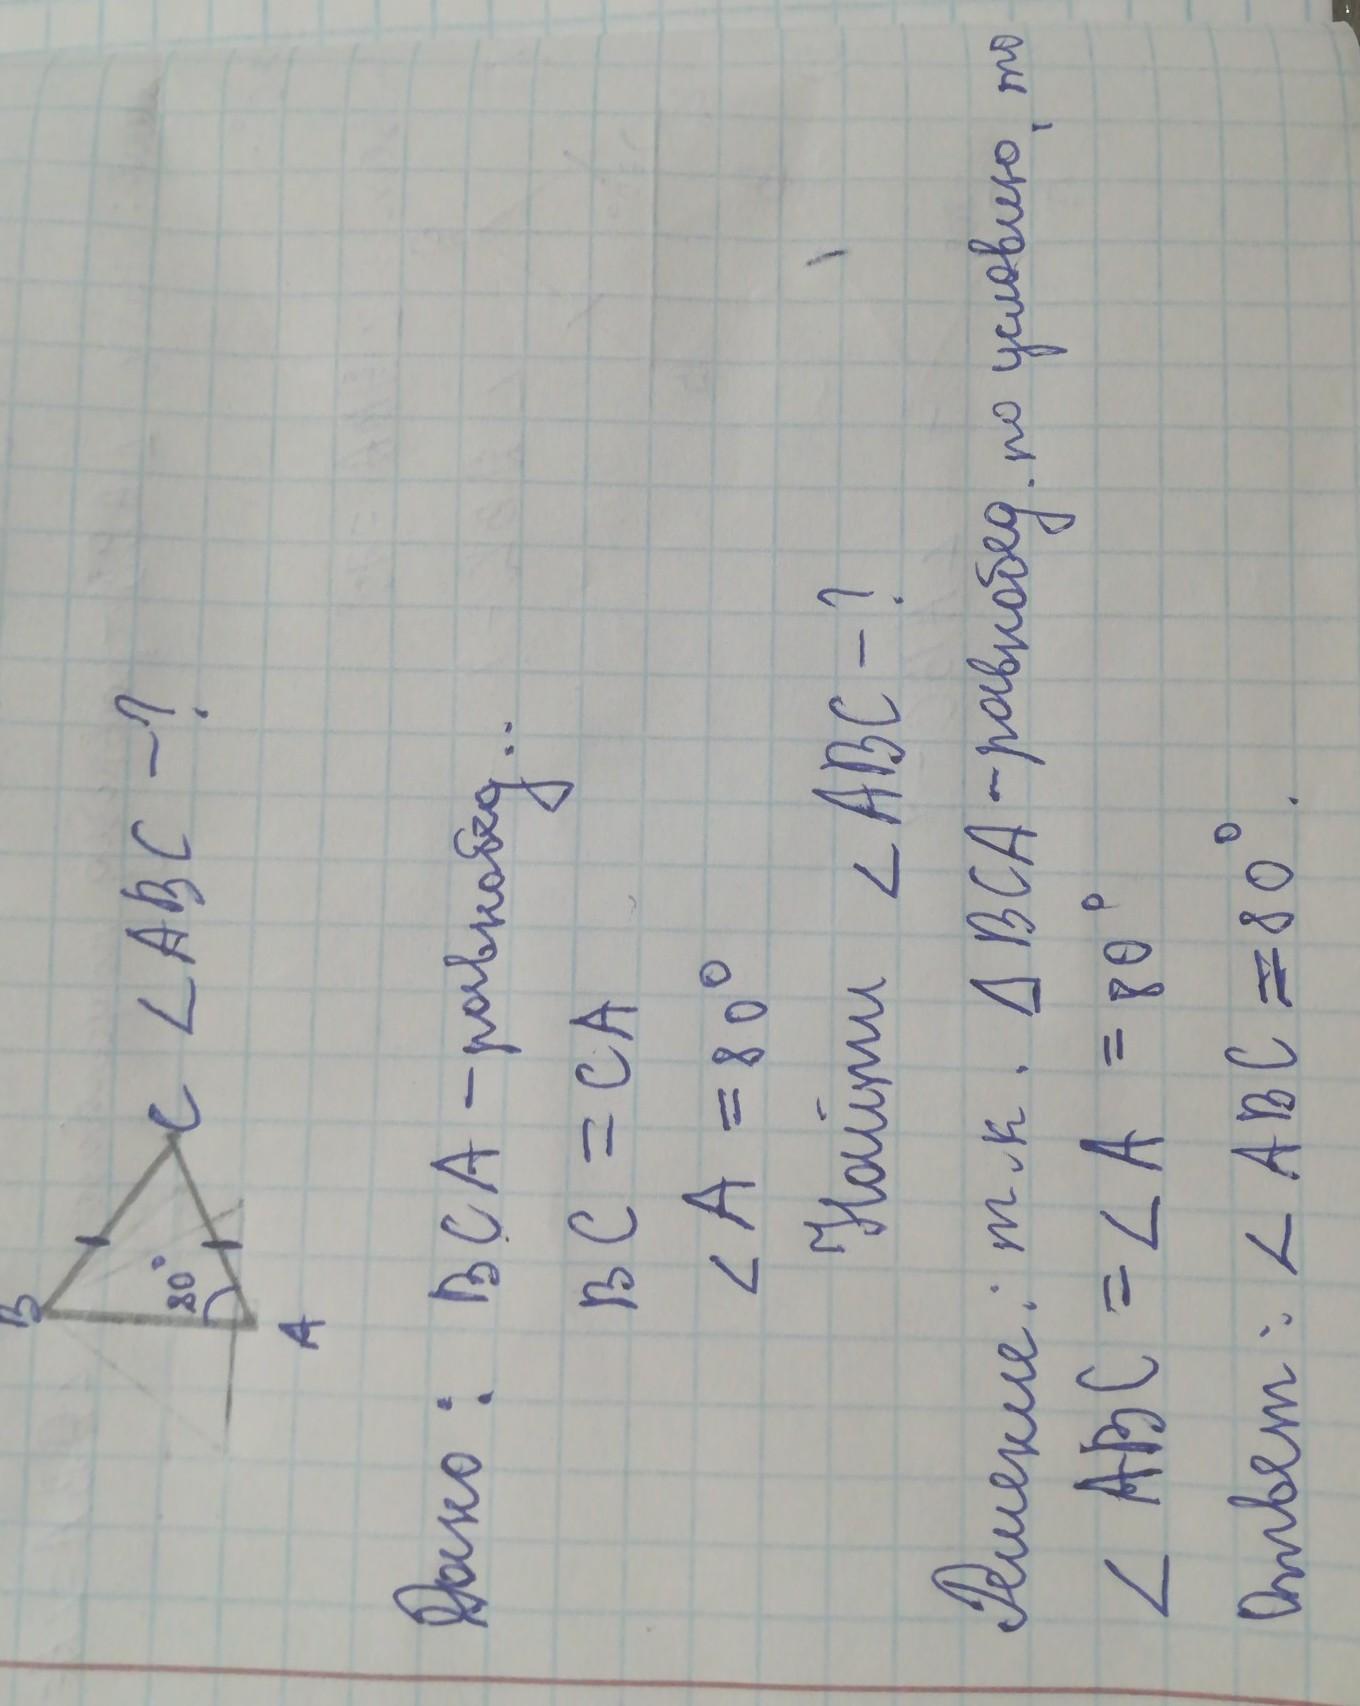 B
80°
A
C
∠ABC-?
Дано: BCA-равнобед.:
BC=CA
∠A=80°
Найти ∠ABC-?
Решение: т.к. ΔBCA-равнобед. по условию, то
∠ABC=∠A=80°
Ответ: ∠ABC=80°.